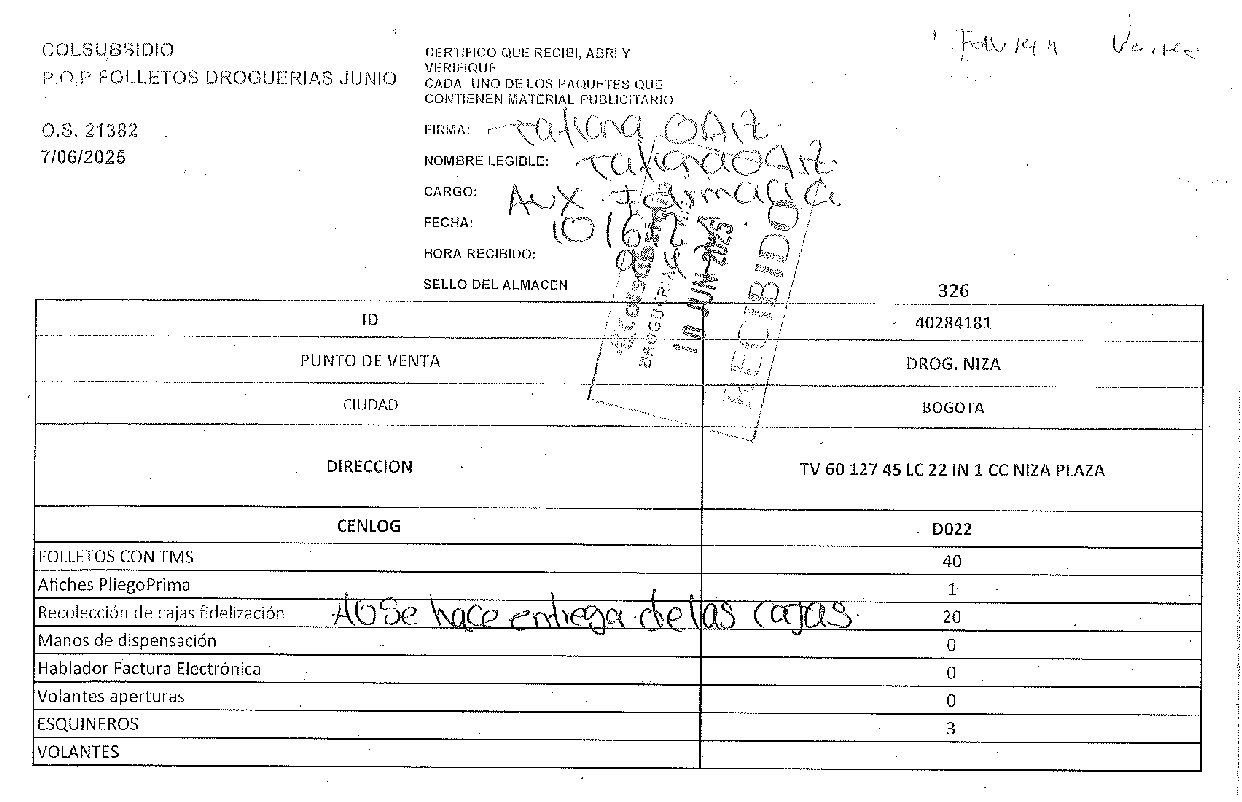 COLSUBSIDIO
P.O.P FOLLETOS DROGUERIAS JUNIO
O.S. 21382
7/06/2025
CERTIFICO QUE RECIBI, ABRI Y
VERIFIQUE
CADA UNO DE LOS PAQUETES QUE
CONTIENEN MATERIAL PUBLICITARIO
FIRMA: Tatiana
NOMBRE LEGIBLE: Tatiana
CARGO: Aux Farmacia
FECHA:
HORA RECIBIDO:
SELLO DEL ALMACEN
10 JUN 2025
RECIBIDO
326
ID 40284181
PUNTO DE VENTA DROG. NIZA
CIUDAD BOGOTA
DIRECCION TV 60 127 45 LC 22 IN 1 CC NIZA PLAZA
CENLOG D022
FOLLETOS CON TMS 40
Afiches PliegoPrima 1
Recolección de cajas fidelización Se hace entrega de las cajas. 20
Manos de dispensación 0
Hablador Factura Electrónica 0
Volantes aperturas 0
ESQUINEROS 3
VOLANTES